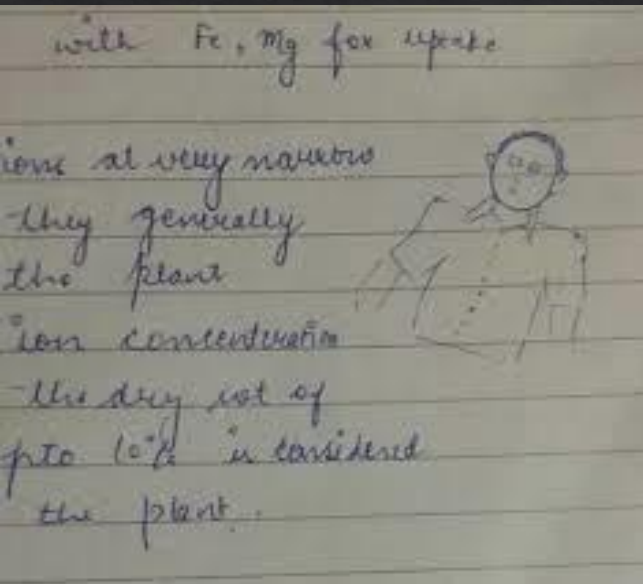 with Fe, Mg for uptake
ions at very narrow
they generally
the plant
ion concentration
the dry wt of
pto 10% is considered
the plant.